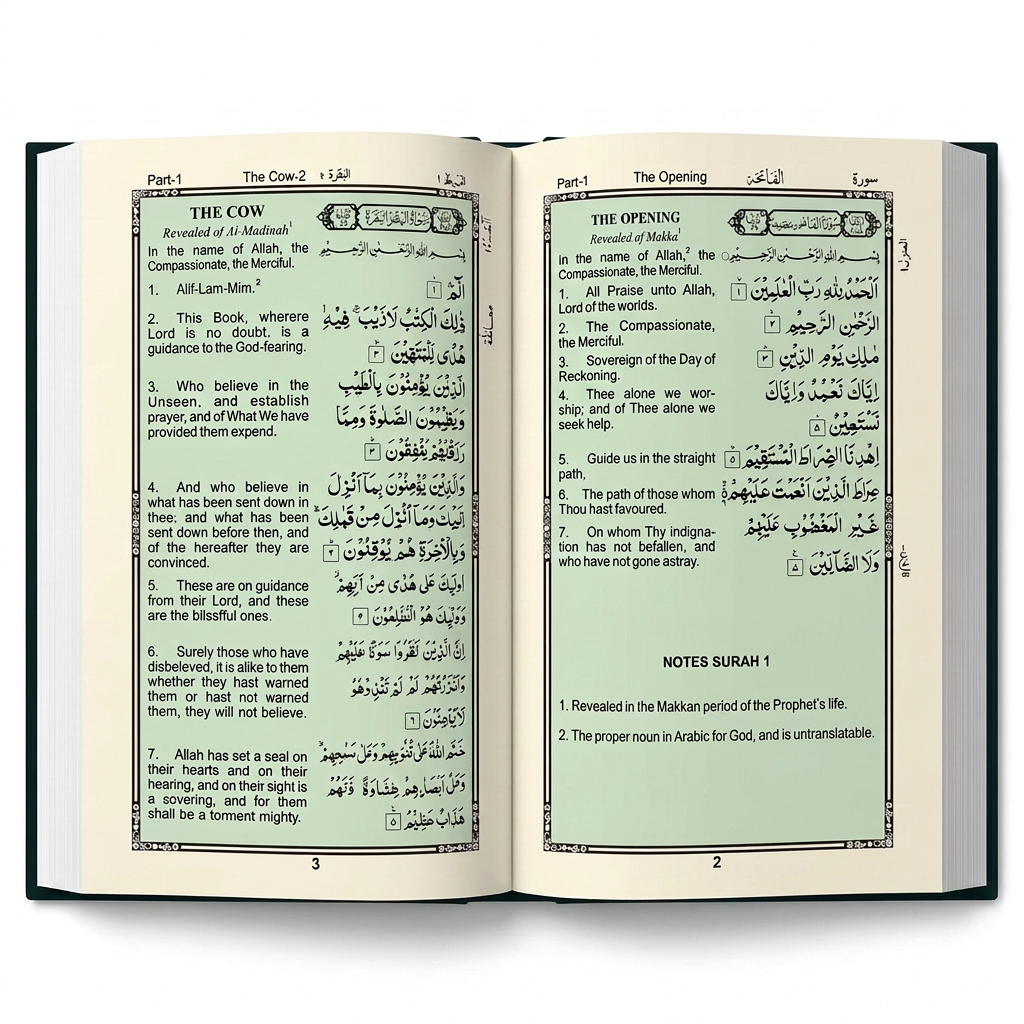 Part-1 The Opening الفَاتِحَة سورة
THE OPENING
Revealed of Makka¹
In the name of Allah,² the
Compassionate, the Merciful.
بِسْمِ اللهِ الرَّحْمٰنِ الرَّحِيْمِ
1. All Praise unto Allah,
Lord of the worlds.
اَلْحَمْدُ لِلّٰهِ رَبِّ الْعٰلَمِيْنَ ١
2. The Compassionate,
the Merciful.
الرَّحْمٰنِ الرَّحِيْمِ ٢
3. Sovereign of the Day of
Reckoning.
مٰلِكِ يَوْمِ الدِّيْنِ ٣
4. Thee alone we wor-
ship; and of Thee alone we
seek help.
اِيَّاكَ نَعْبُدُ وَاِيَّاكَ
نَسْتَعِيْنُ ۵
5. Guide us in the straight
path,
اِهْدِنَا الصِّرَاطَ الْمُسْتَقِيْمَ ۵
6. The path of those whom
Thou hast favoured.
صِرَاطَ الَّذِيْنَ اَنْعَمْتَ عَلَيْهِمْ
7. On whom Thy indigna-
tion has not befallen, and
who have not gone astray.
غَيْرِ الْمَغْضُوْبِ عَلَيْهِمْ
وَلَا الضَّآلِّيْنَ ۵
NOTES SURAH 1
1. Revealed in the Makkan period of the Prophet's life.
2. The proper noun in Arabic for God, and is untranslatable.
2
Part-1 The Cow-2 البَقَرَة ٢
THE COW
Revealed of Ai-Madinah¹
In the name of Allah, the
Compassionate, the Merciful.
بِسْمِ اللهِ الرَّحْمٰنِ الرَّحِيْمِ
1. Alif-Lam-Mim.²
الٓمّٓ ١
2. This Book, wherere
Lord is no doubt. is a
guidance to the God-fearing.
ذٰلِكَ الْكِتٰبُ لَاذَيْبَ فِيْهِ
هُدًى لِّلْمُتَّقِيْنَ ٣
3. Who believe in the
Unseen. and establish
prayer, and of What We have
provided them expend.
الَّذِيْنَ يُؤْمِنُوْنَ بِالْطَيْبِ
وَيَقِيْمُوْنَ الصَّلٰوةَ وَمِمَّا
٣
4. And who believe in
what has been sent down in
thee: and what has been
sent down before then, and
of the hereafter they are
convinced.
وَالَّذِيْنَ يُؤْمِنُوْنَ بِمَآ اَنْزِلَ
اِلَيْكَ وَمَآ اُنْزِلَ مِنْ
وَبِالْاٰخِرَةِ هُمْ يُوْقِنُوْنَ ٢
5. These are on guidance
from their Lord, and these
are the bllssfful ones.
اُولٰٓئِكَ عَلٰى هُدًى مِنْ
6. Surely those who have
disbeleved, it is alike to them
whether they hast warned
them or hast not warned
them, they will not believe.
اِنَّ الَّذِيْنَ
٦
7. Allah has set a seal on
their hearts and on their
hearing, and on their sight is
a sovering, and for them
shall be a torment mighty.
خَتَمَ اللهُ عَلٰى
۵
3